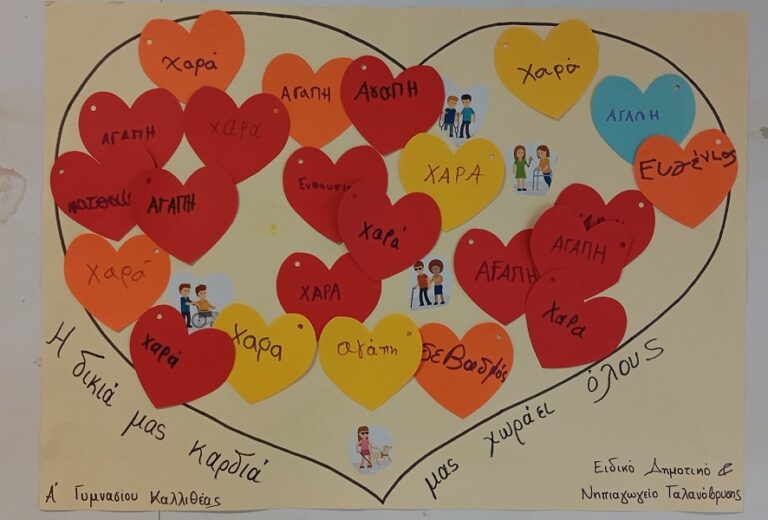 χαρά
χαρά
Αγαπη
Αγαπη
ΑΓΑΠΗ
ΑΓΑΠΗ
χαρα
ΧΑΡΑ
Ευγένιος
ΑΓΑΠΗ
χαρά
χαρά
ΑΓΑΠΗ
ΑΓΑΠΗ
ΧΑΡΑ
Χαρα
χαρά
χαρα
αγάπη
σεβασμός
Η δικιά μας καρδιά
μας χωράει όλους
Α' Γυμνασίου Καλλιθέας
Ειδικό Δημοτικό &
Νηπιαγωγείο Ταλανόβρυσης